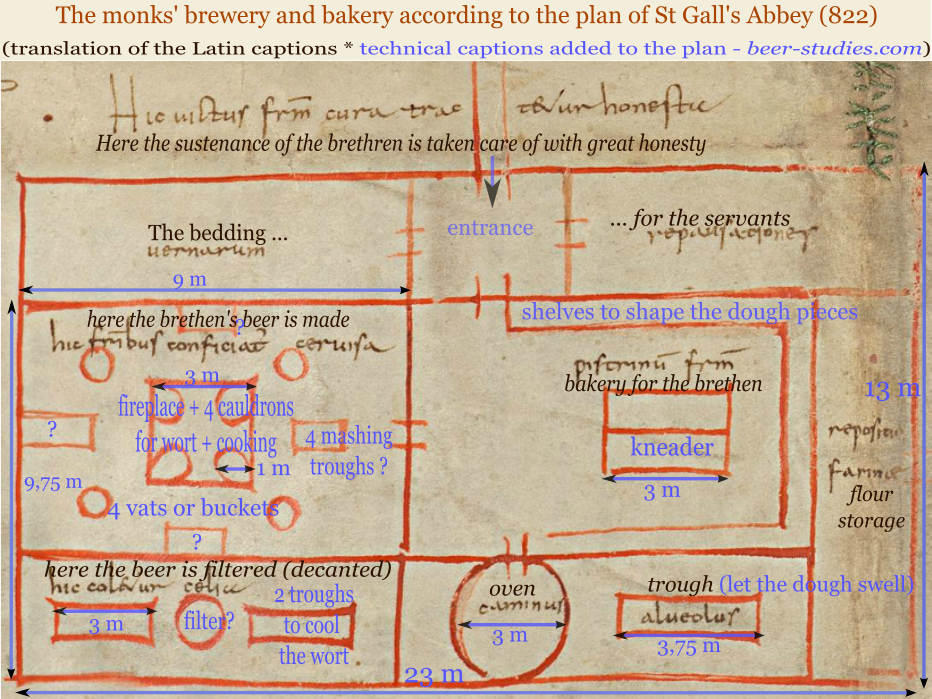 The monks' brewery and bakery according to the plan of St Gall's Abbey (822)
(translation of the Latin captions * technical captions added to the plan - beer-studies.com)
Hic victus frm cura trac tetur honeste
Here the sustenance of the brethren is taken care of with great honesty
The bedding ...
uernarum
entrance
... for the servants
repausationes
9 m
here the brethen's beer is made
?
hic fribus conficiat cervisa
shelves to shape the dough pieces
3 m
fireplace + 4 cauldrons
for wort + cooking
1 m
4 mashing
troughs ?
?
9,75 m
4 vats or buckets
?
pistrinu frm
bakery for the brethen
kneader
3 m
13 m
farine
flour
storage
here the beer is filtered (decanted)
hic colatur celia
3 m
filter?
2 troughs
to cool
the wort
oven
caminus
3 m
trough (let the dough swell)
alueolus
3,75 m
23 m